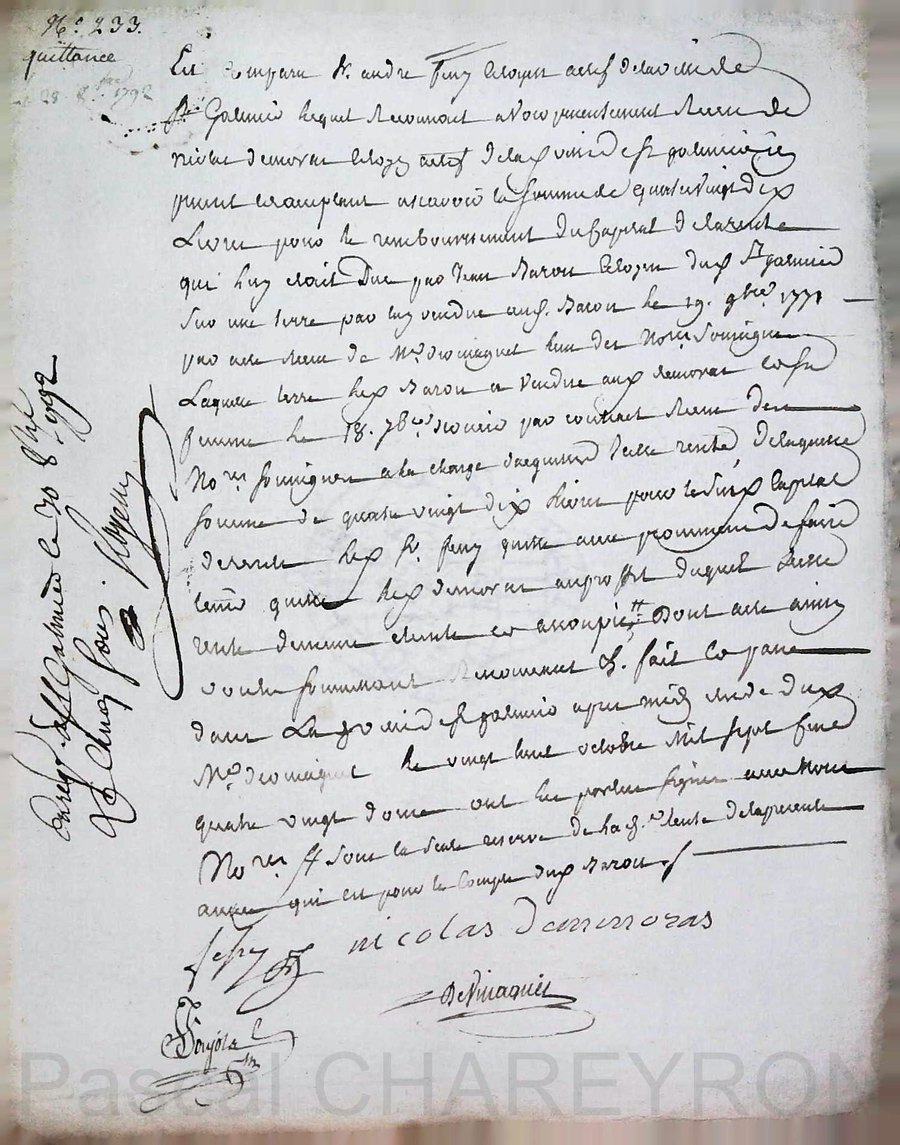 N.° 233.
quittance
28 8bre 1792
Est comparu Sr. andré citoyen actif de la ville de
St Galmier lequel reconnoit avoir presentement receu de
nicolas demorat citoyen actif de la d. ville de st galmier icy
present et acceptant ascavoir la somme de quatre vingt dix
Livres pour le remboursement du Capital de la rente
qui luy etoit Due par Jean Baron citoyen dud. St galmier
sur une terre par luy vendue aud. Baron le 19. 9bre 1771
par acte receu de Me. l'un des Nores. soussignés
Laquelle terre led. Baron a vendue aud. demorat et sa
femme le 18. 7bre dernier par contract receu des
Nores soussignés a la charge d'acquitter laditte rente de laquelle
somme de quatre vingt dix Livres pour le susd. Capital
de rente led. Sr. quitte avec promesse de faire
tenir quitte led. demorat au proffit duquel laditte
rente demeure eteinte et assoupie # Dont acte ainsi
voulu soumettant renonceant &. fait et passé
dans La d. ville de st galmier apres midy etude dud.
Me. le vingt huit octobre Mil sept cent
quatre vingt douze ont les parties signées avec Nous
Nores # sous la seule reserve de la d. rente de la presente
année qui est pour le Compte dud. Baron
nicolas Demmoras
Enregé. a St Galmier le 30 8bre 1792
Reçu cinq sous
Pascal CHAREYRON